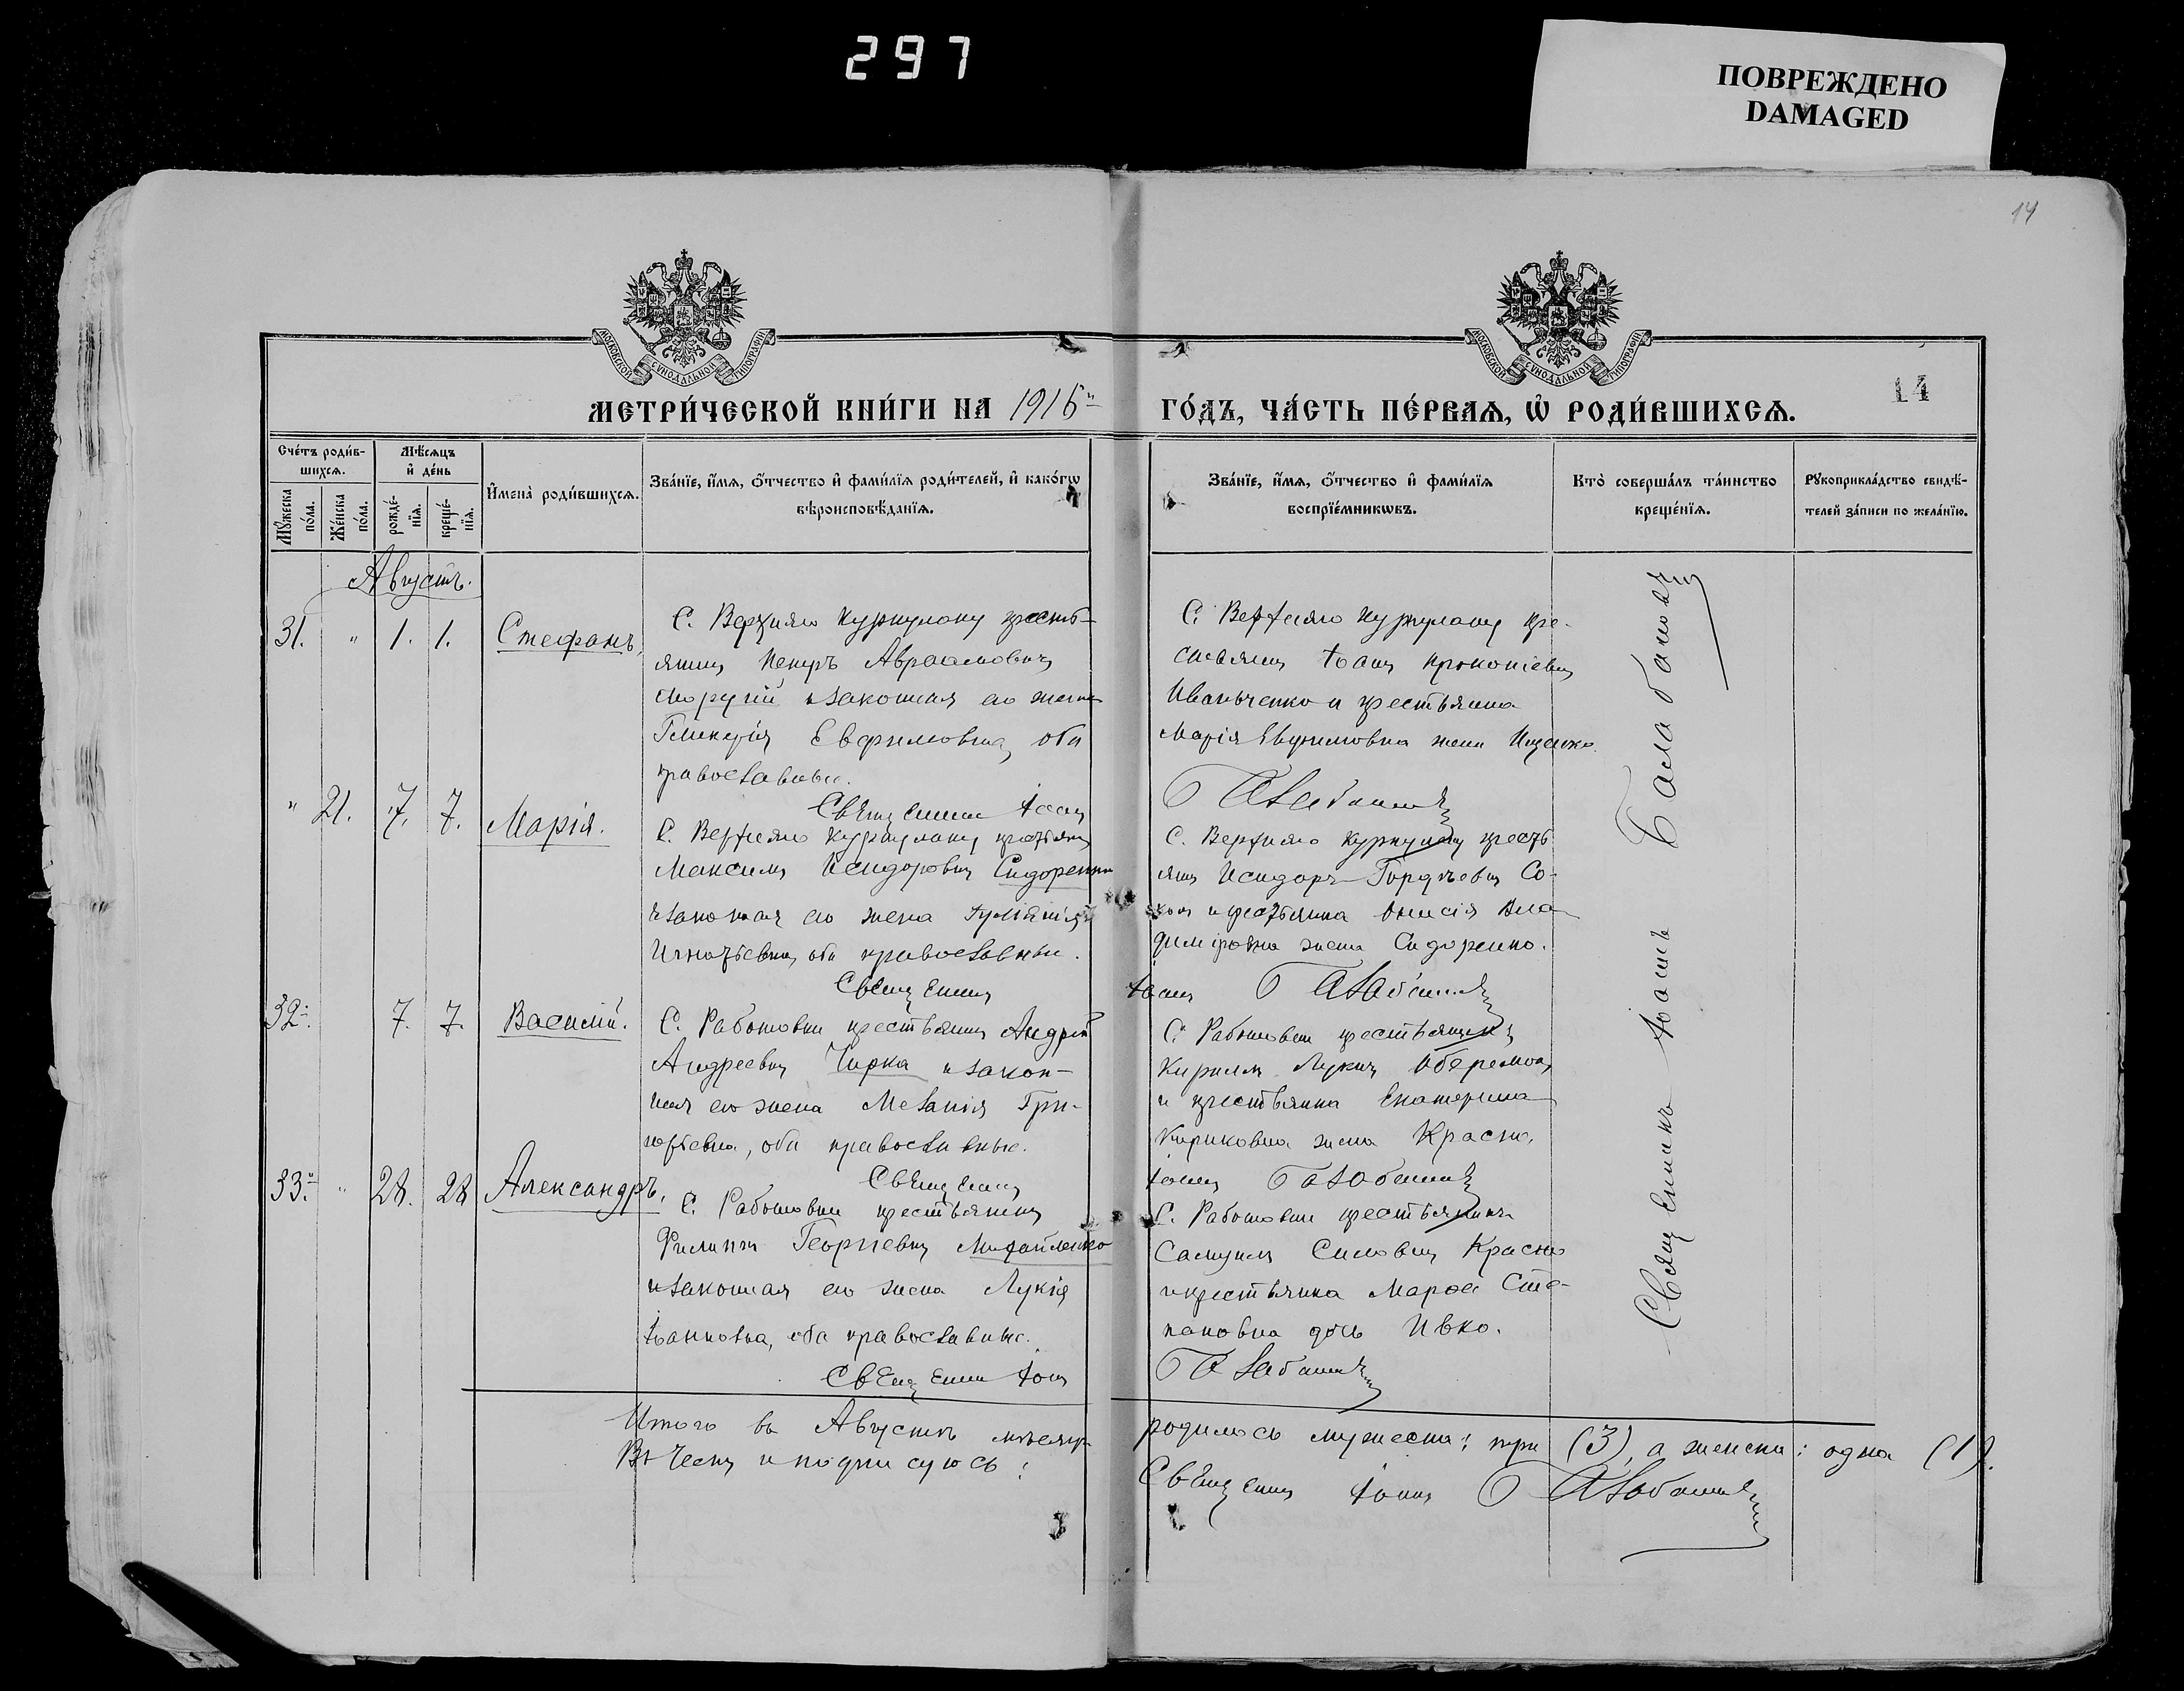 297
ПОВРЕЖДЕНО
DAMAGED
14
МОСКОВСКОЙ СѴНОДАЛЬНОЙ ТИПОГРАФІИ
МОСКОВСКОЙ СѴНОДАЛЬНОЙ ТИПОГРАФІИ
14
МЕТРИ́ЧЕСКОЙ КНИ́ГИ НА 1916й ГО́ДЪ, ЧА́СТЬ ПЕ́РВАѦ, Ѽ РОДИ́ВШИХСѦ.
Сче́тъ роди́вшихсѧ.
Мꙋ́жеска по́ла.
Же́нска по́ла.
Мѣ́сѧцъ и҆ де́нь
рожде́нїѧ.
креще́нїѧ.
И҆мена̀ роди́вшихсѧ.
Зва́нїе, и҆́мѧ, ѻ҆́тчество и҆ фами́лїѧ роди́телей, и҆ како́гѡ
вѣроисповѣ́данїѧ.
Зва́нїе, и҆́мѧ, ѻ҆́тчество и҆ фами́лїѧ
воспрїе́мникѡвъ.
Кто̀ соверша́лъ та́инство
креще́нїѧ.
Рꙋкоприкла́дство свидѣ́-
телей за́писи по жела́нїю.
Августъ.
31. " 1. 1. Стефанъ.
С. Верхняго Куркулаку кресть-
янинъ Петръ Авраамовичъ
и законная его жена
Евфимовна, оба
православные.
Священникъ Іоаннъ
С. Верхняго Куркулаку кре-
стьянинъ Іоаннъ Прокопіевичъ
Иванченко и крестьянка
Марія Евфимовна жена Ищенко.
Балабановъ
" 21. 7. 7. Марія.
С. Верхняго Куркулаку крестьянинъ
Максимъ Исидоровичъ Сидоренко
и законная его жена Іуліанія
Игнатьевна, оба православные.
Священникъ
С. Верхняго Куркулаку кресть
янинъ Исидоръ Гордѣевичъ Со-
и крестьянка Анисія Вла-
димировна жена Сидоренко.
Іоаннъ Балабановъ
32й. 7. 7. Василій.
С. Работовки крестьянинъ Андрей
Андреевичъ Чирка и закон-
ная его жена Меланія Гри-
горьевна, оба православные.
Священникъ
С. Работовки крестьянинъ
Кириллъ Лукичъ Оберемокъ
и крестьянка Екатерина
Кириковна жена Красно.
Іоаннъ Балабановъ
33й. " 28. 28 Александръ.
С. Работовки крестьянинъ
Филиппъ Георгіевичъ Михайленко
и законная его жена Лукія
Іоанновна, оба православные.
Священникъ Іоаннъ
С. Работовки крестьянинъ
Самуилъ Силовичъ Красно
и крестьянка Марѳа Сте-
пановна дочь Ивко.
Балабановъ
Священникъ Іоаннъ Балабановъ
Итого въ Августѣ мѣсяцѣ родилось мужеска: три (3), а женска: одна (1).
Въ чемъ и подписуюсь: Священникъ Іоаннъ Балабановъ